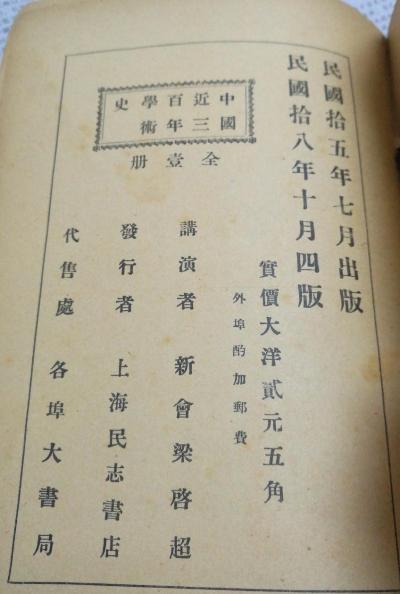 民國拾五年七月出版
民國拾八年十月四版
實價大洋貳元五角
外埠酌加郵費
中國近三百年學術史
全壹册
講演者 新會梁啓超
發行者 上海民志書店
代售處 各埠大書局